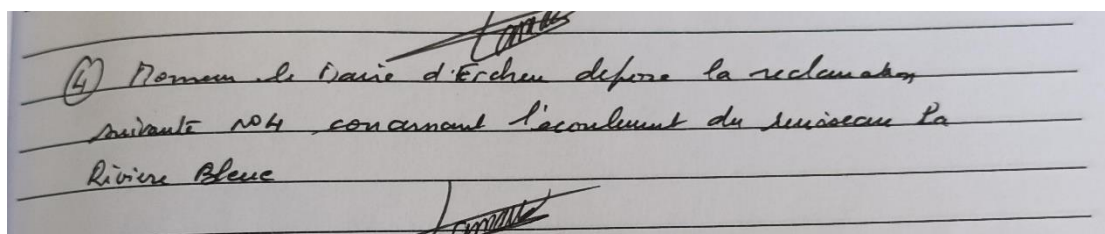 ④ Monsieur le Maire d'Ercheu depose la reclamation
suivante N°4 concernant l'ecoulement du ruisseau la
Riviere Bleue